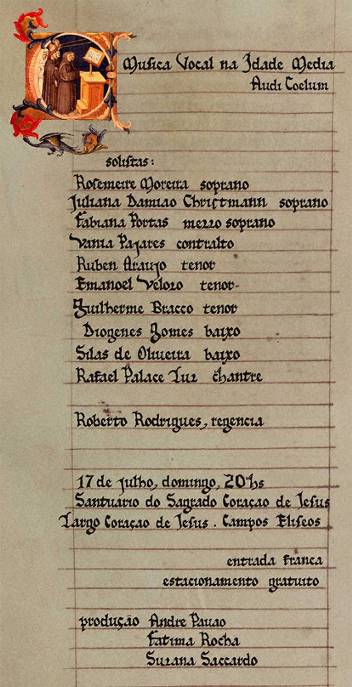 Musica Vocal na Idade Media
Audi Coelum
solistas:
Rosemeire Moreira soprano
Juliana Damiao Christmann soprano
Fabiana Portas mezzo soprano
Vania Pajares contralto
Ruben Araujo tenor
Emanoel Velozo tenor
Guilherme Bracco tenor
Diogenes Gomes baixo
Silas de Oliveira baixo
Rafael Palace Luz chantre
Roberto Rodrigues, regencia
17 de julho, domingo, 20hs
Santuario do Sagrado Coraçao de Jesus
Largo Coraçao de Jesus . Campos Eliseos
entrada franca
estacionamento gratuito
produção Andre Pavao
Fatima Rocha
Suzana Saccardo